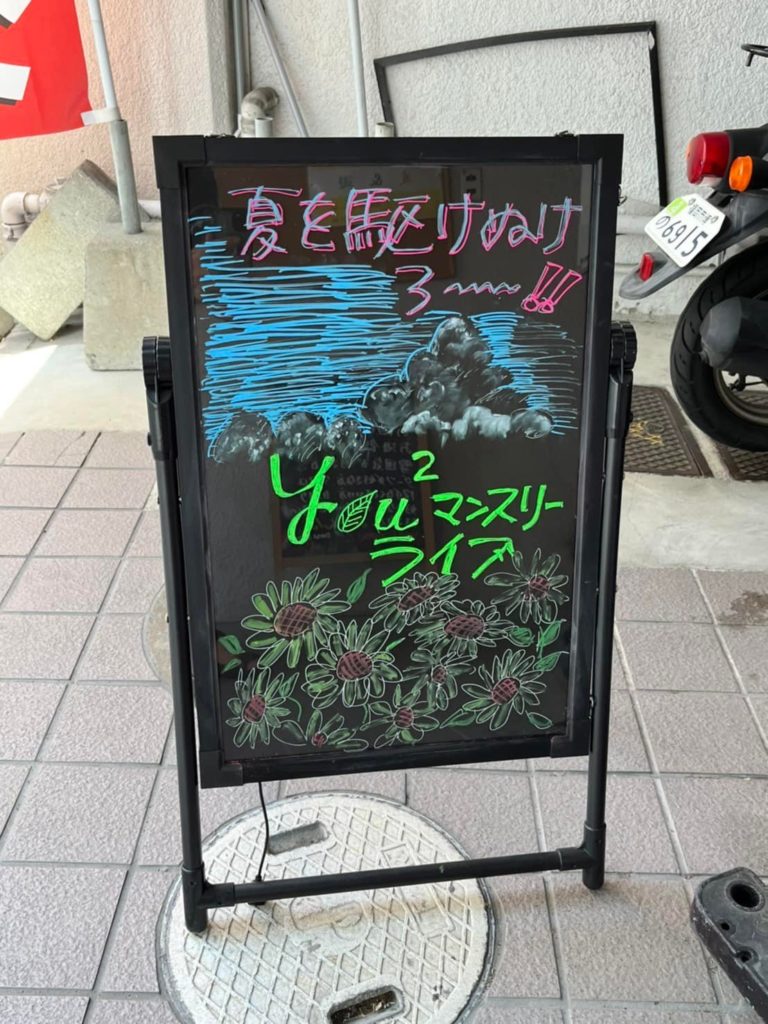 夏を駆けぬけ
ろ〜〜〜!!
You²マンスリー
ライブ
の6915